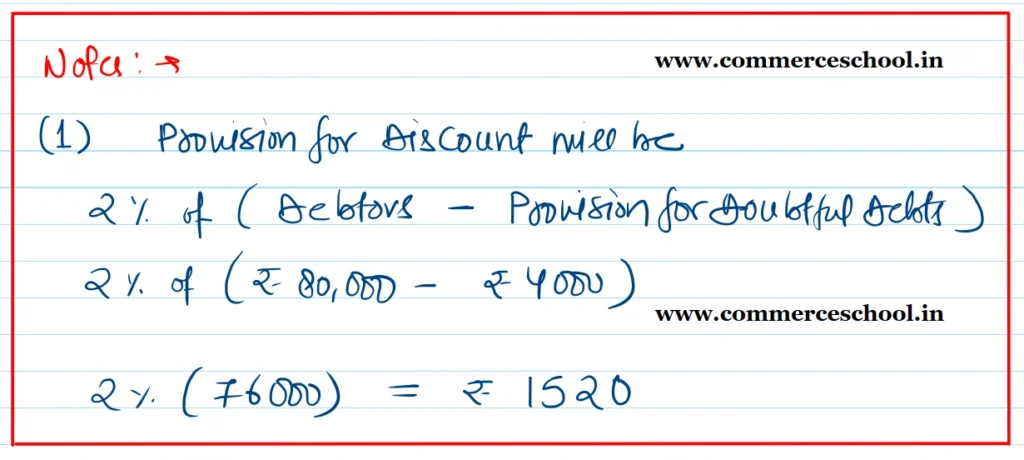 Notes: →
www.commerceschool.in
(1) Provision for Discount will be
2% of ( Debtors - Provision for Doubtful Debts )
2% of ( ₹ 80,000 - ₹ 4000 )
www.commerceschool.in
2% ( 76000 ) = ₹ 1520